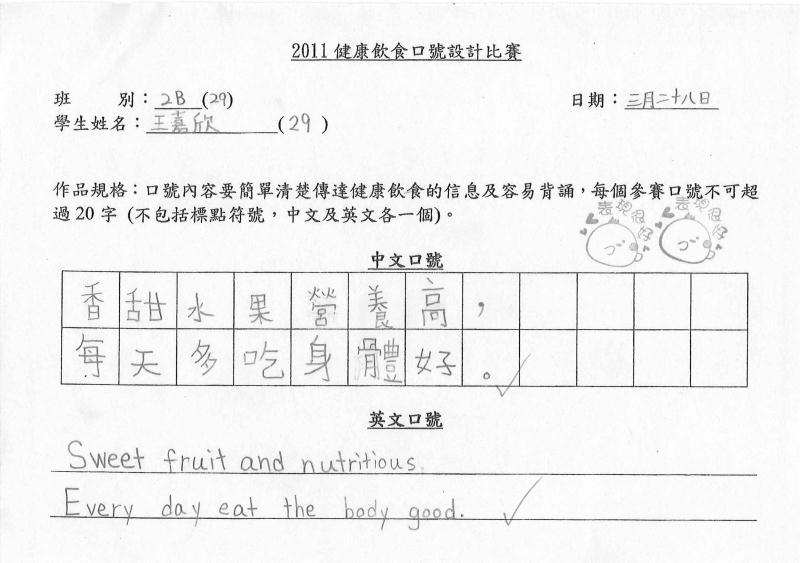 2011健康飲食口號設計比賽
班 別：2B (29)
日期：三月二十八日
學生姓名：王嘉欣 (29)
作品規格：口號內容要簡單清楚傳達健康飲食的信息及容易背誦，每個參賽口號不可超
過20字 (不包括標點符號，中文及英文各一個)。
表現很好 表現很好
中文口號
香甜水果營養高，
每天多吃身體好。
英文口號
Sweet fruit and nutritious.
Every day eat the body good.